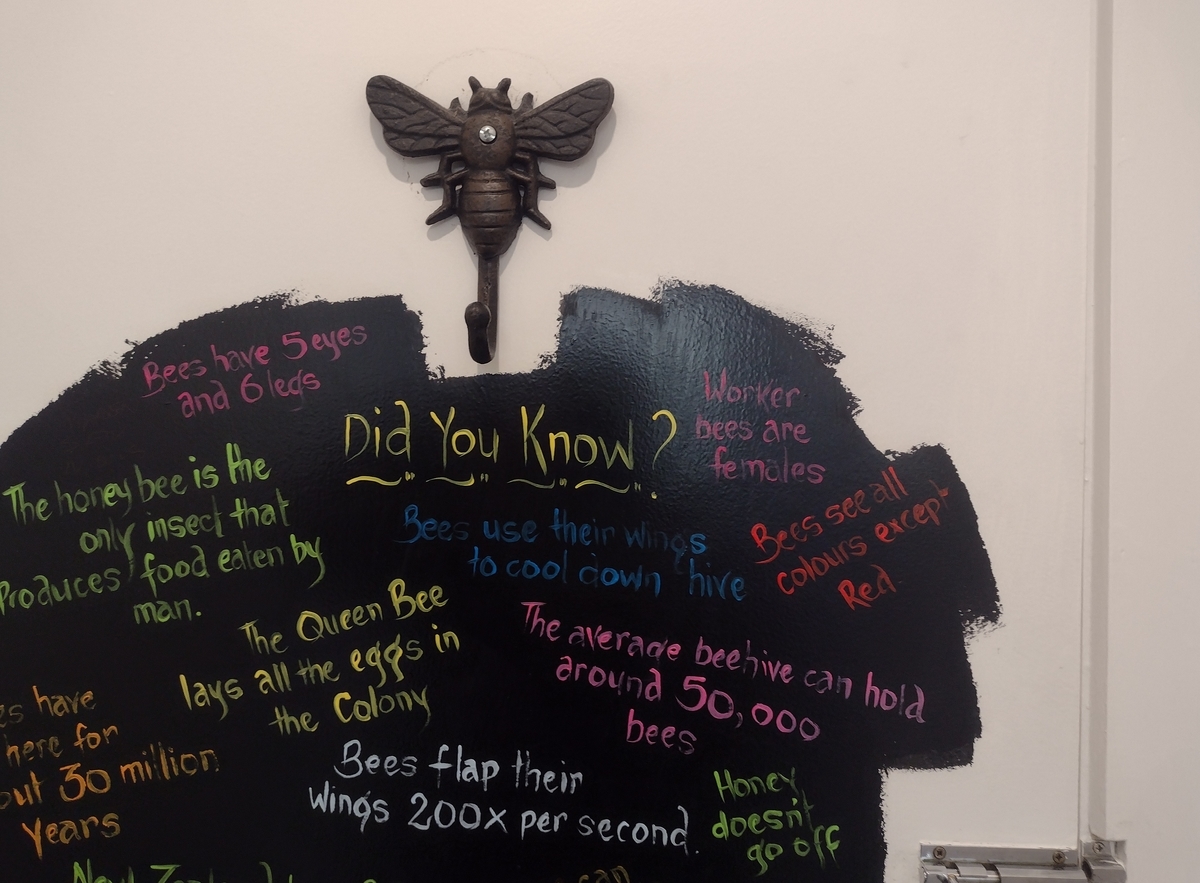 Bees have 5 eyes
and 6 legs
Did You Know?
Worker
bees are
females
The honey bee is the
only insect that
Produces food eaten by
man.
Bees use their wings
to cool down hive
Bees see all
colours except
Red.
The Queen Bee
lays all the eggs in
the Colony
The average beehive can hold
around 50,000
bees
have
here for
30 million
Years
Bees flap their
wings 200x per second.
Honey
doesn't
go off
New
can